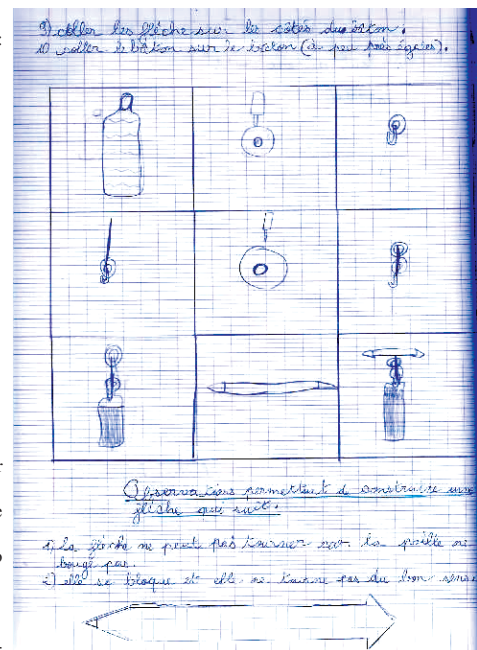 9) coller les flèche sur les côtés du bâton.
10) coller le bâton sur le bidon (à peu près égales).
Observations permettent de construire une
flèche qui suit.
1) la flèche ne peut pas tourner car la paille ne
bouge pas.
2) elle se bloque et elle ne tourne pas du bon sens